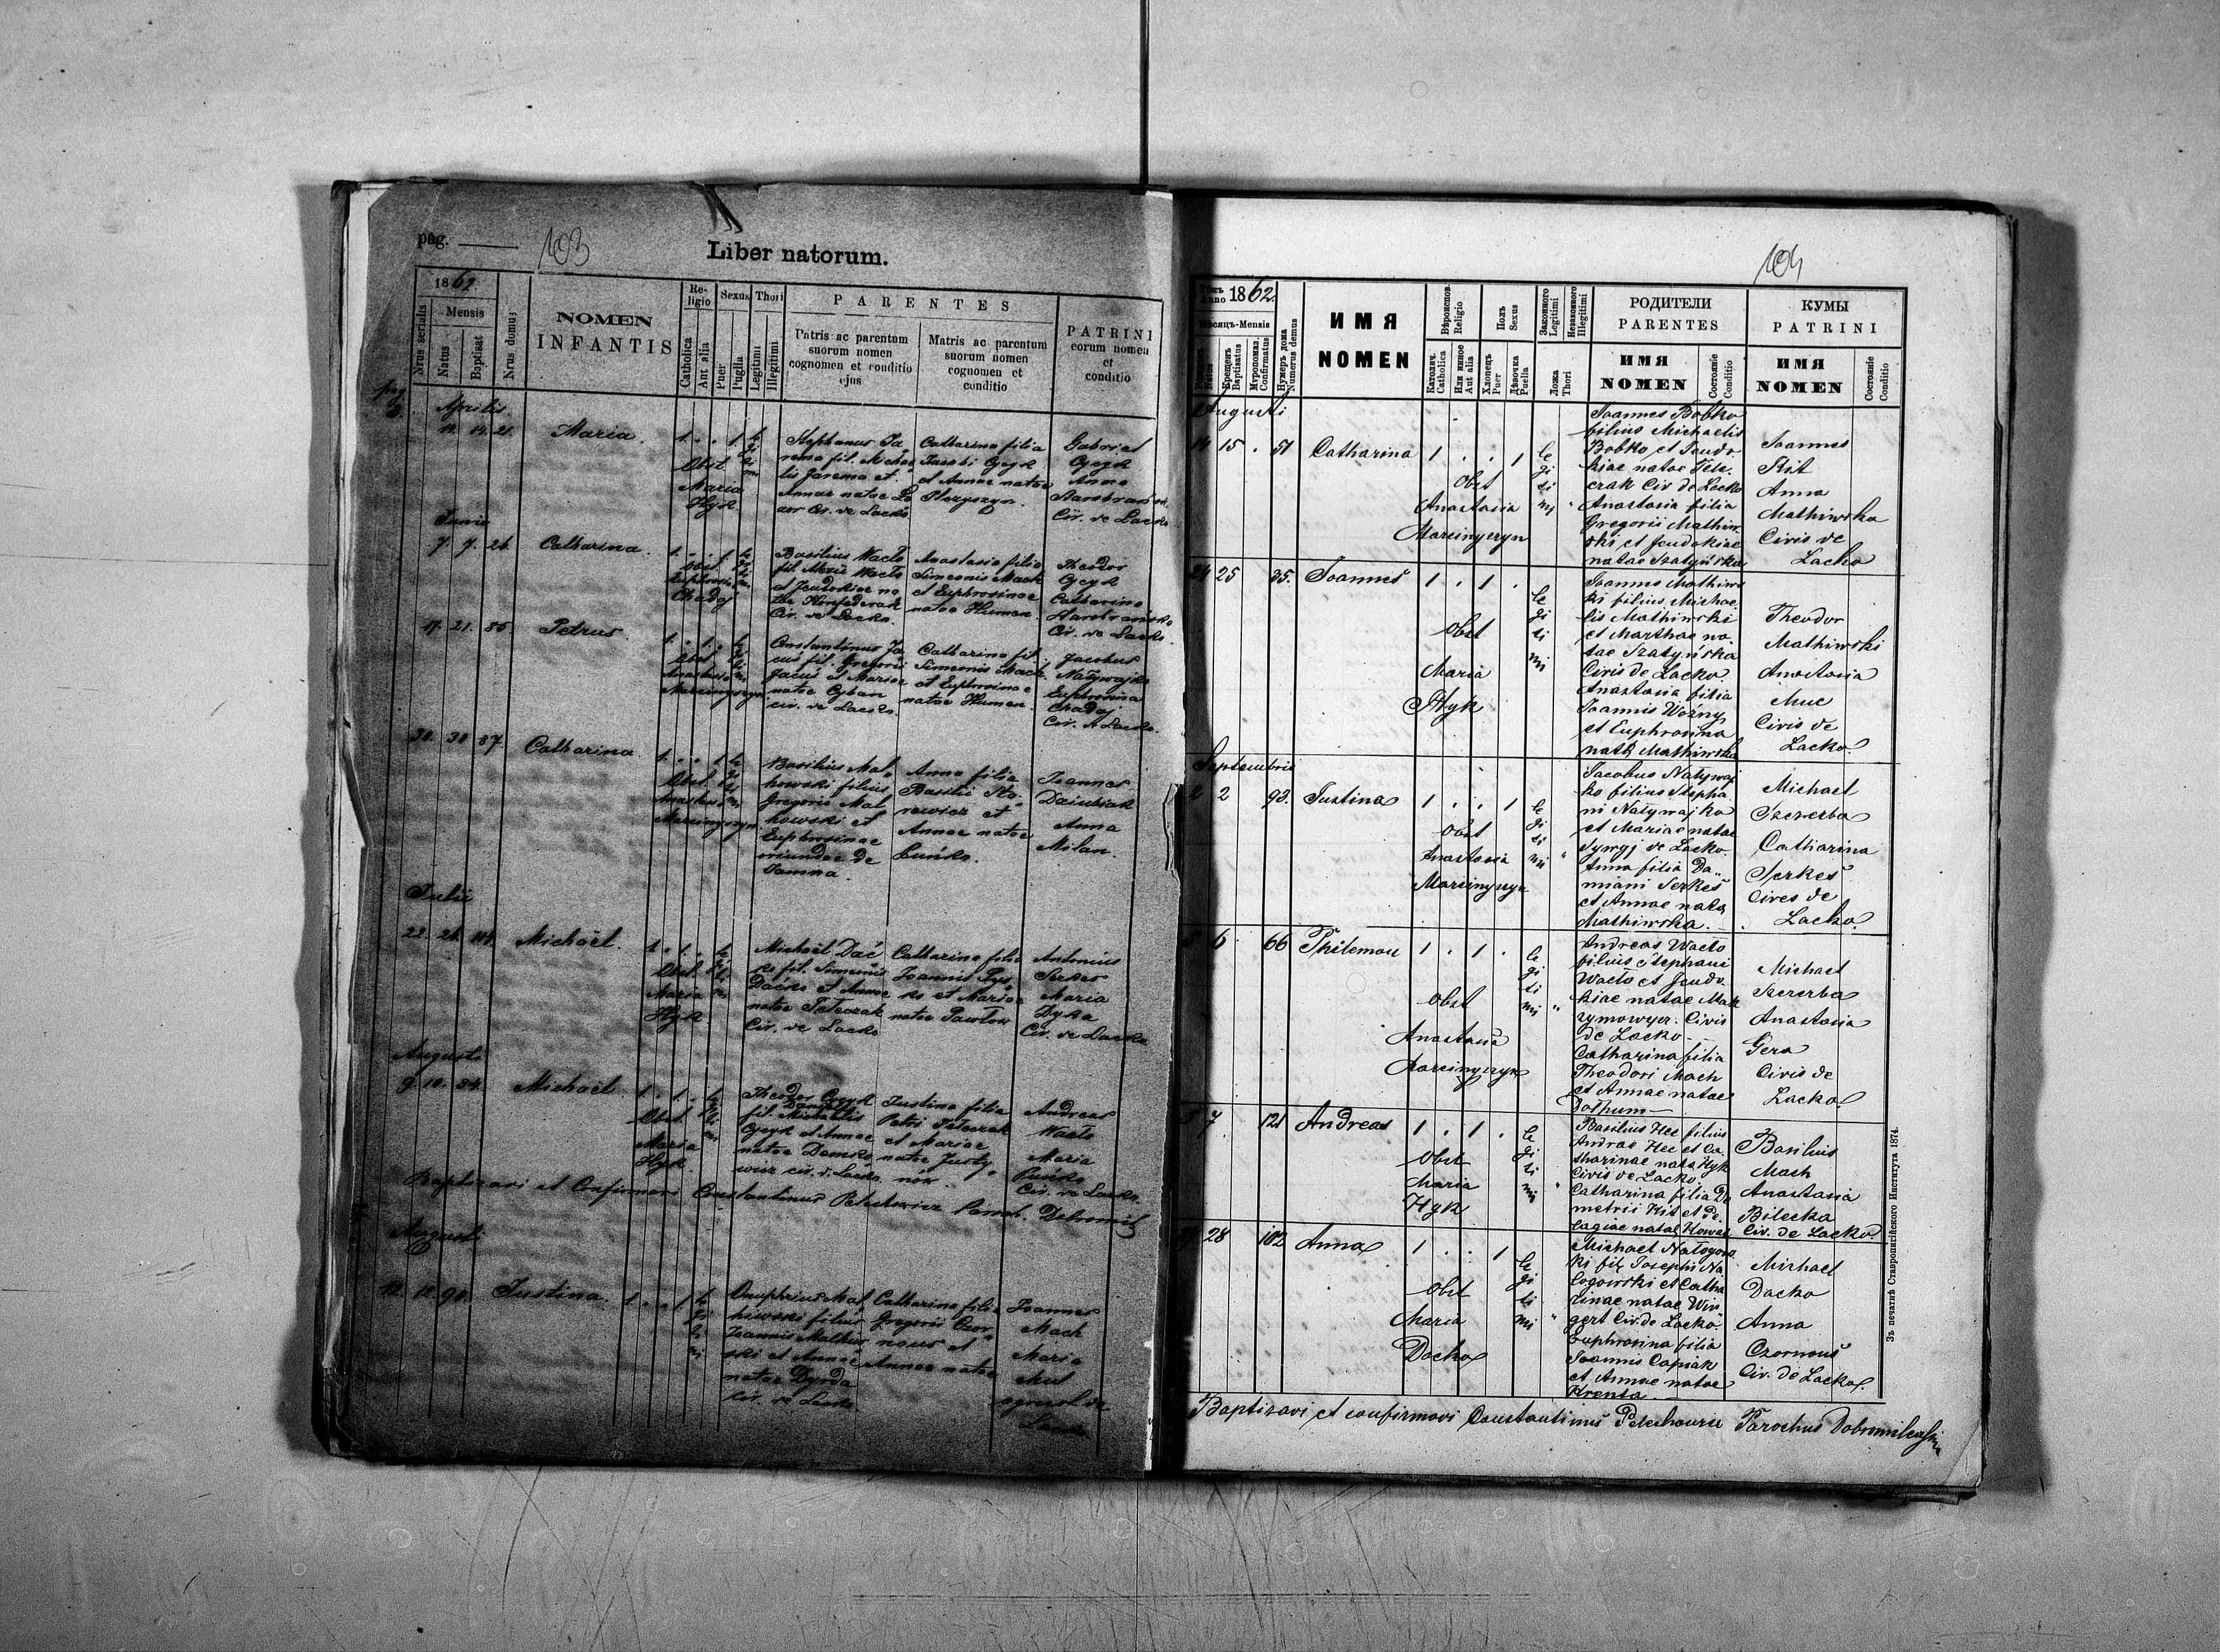 pag. 103
Liber natorum.
1862.
Nrus serialis
Mensis
Natus
Baptisat
Nrus domus
NOMEN
INFANTIS
Religio
Catholica
Aut alia
Sexus
Puer
Puella
Thori
Legitimi
Illegitimi
PARENTES
Patris ac parentum
suorum nomen
cognomen et conditio
ejus
Matris ac parentum
suorum nomen
cognomen et
conditio
PATRINI
eorum nomen
et
conditio
Aprilis
12. 14. 21. Maria. 1. . . 1. le gi ti mi
Obst.
Maria
Hyk.
Stephanus Ja
rema fil. Michae
lis Jarema et
Annae natae
Civ. de Lacko.
Catharina filia
Jacobi Cycyk
et Annae natae
Gabriel
Cycyk
Anna
Civ. de Lacko
Junii
7. 7. 26. Catharina. 1. . . 1. le gi ti mi
Obst.
Euphrosina
Chadaj
Basilius Wacło
Wacło
et Jeudokiae na
tae Konfederak
Civ. de Lacko.
Anastasia filia
Simeonis Mach
et Euphrosinae
natae Humen.
Theodor
Cycyk
Catharina
Civ. de Lacko
17. 21. 86. Petrus. 1. . 1. . le gi ti mi
Obst.
Anastasia
Marcinyszyn
Constantinus Ja
cuś fil. Gregorii
Jacuś et Mariae
natae Cyban
Civ. de Lacko.
Catharina fil.
Simeonis Mach
et Euphrosinae
natae Humen.
Jacobus
Natywajko
Euphrosina
Chadaj
Civ. d. Lacko.
30. 30 87. Catharina 1. . . 1. le gi ti mi
Obst.
Anastasia
Marcinyszyn
Basilius Mal
howski filius
Gregorii Mal
howski et
Euphrosinae
oriundae de
Anna filia
Basilii
rewicz et
Annae natae
Łuńko.
Joannes
Dziubiak
Anna
Milan.
Julii
22. 26. 104. Michaël. 1. . 1. . le gi ti mi
Obst.
Maria
Hyk
Michaël Dać
ko fil. Simeonis
Daćko et Annae
natae Teteczak
Civ. de Lacko
Catharina filia
Joannis Łys
ko et Mariae
natae Pawłow
Antonius
Serkes
Maria
Dyka
Civ. de Lacko
Augusti
9. 10. 34. Michaël. 1. . 1. . le gi ti mi
Obst.
Maria
Hyk.
Theodor Cycyk
fil. Danielis
Cycyk et Annae
natae
civ. d. Lacko.
Justina filia
Petri Teteczak
et Mariae
natae Justy
Andreas
Wacło
Maria
Puńko
Civ. de Lacko.
Baptizavi et Confirmavi Constantinus Petechowicz Paroch. Dobromil
Augusti
12. 12. 90. Justina. 1. . . 1. le gi ti mi
Onuphrius Mal
hiwski filius
Joannis Malhiw
ski et Annae
natae Dyrda
Civ. de Lacko.
Catharina filia
Gregorii Czor
nous et
Annae natae
Joannes
Mach
Maria
Mul
agricol. de
Lacko
104
Рôкъ
Anno 1862.
Мѣсяцъ-Mensis
Natus
Крещенъ
Baptisatus
Мѵропомаз.
Confirmatus
Нумеръ дома
Numerus domus
ИМЯ
NOMEN
Вѣроиспов.
Religio
Католич.
Catholica
Или иное
Aut alia
Полъ
Sexus
Хлопецъ
Puer
Дѣвочка
Puella
Законного
Legitimi
Незаконного
Illegitimi
Ложа
Thori
РОДИТЕЛИ
PARENTES
ИМЯ
NOMEN
Состояніе
Conditio
КУМЫ
PATRINI
ИМЯ
NOMEN
Состояніе
Conditio
Augusti
14 15 . 51 Catharina 1 . . 1 le gi ti mi
Obst
Anastasia
Marcinyszyn
Joannes Bobko
filius Michaelis
Bobko et Jeudo
kiae natae Tete
czak Civ de Lacko
Anastasia filia
Gregorii Mathiw
ski et Jeudokiae
natae Szatyńska
Joannes
Kit
Anna
Mathiwska
Civis de
Lacko
24 25 35. Joannes 1 . 1 . le gi ti mi
Obst
Maria
Hyk
Joannes Mathiws
ki filius Michae
lis Mathiwski
et Marthae na
tae Szatyńska
Civis de Lacko.
Anastasia filia
Joannis Woźny
et Euphrosina
nata Mathiwska
Theodor
Mathiwski
Anastasia
Muc
Civis de
Lacko.
Septembris
2 2 93. Justina 1 . . 1 le gi ti mi
Obst
Anastasia
Marcinyszyn
Jacobus Natywaj
ko filius Stepha
ni Natywajko
et Mariae natae
de Lacko.
Anna filia Da
miani Serkes
et Annae nata
Mathiwska.
Michael
Szczerba
Catharina
Serkes
Cives de
Lacko.
5 6 66 Philemon 1 . 1 . le gi ti mi
Obst
Anastasia
Marcinyszyn
Andreas Wacło
filius Stephani
Wacło et Jeudo
kiae natae Mak
symowycz. Civis
de Lacko
Catharina filia
Theodori Mach
et Annae natae
Michael
Szczerba
Anastasia
Gera
Civis de
Lacko.
5 7 121 Andreas 1 . 1 . le gi ti mi
Obst
Maria
Hyk
Basilius Hec filius
Andreae Hec et Ca
tharinae nata Hyk
Civis de Lacko
Catharina filia De
metrii Kit et Pe
lagiae natae Kowal
Basilius
Mach
Anastasia
Bilecka
Civ. de Lacko.
27 28 102 Anna 1 . . 1 le gi ti mi
Obst
Maria
Dacko
Michael Natogows
ki fil. Josephi Na
togowski et Catha
rinae natae Win
gert Civ. de Lacko.
Euphrosina filia
Joannis Capiak
et Annae natae
Krenta
Michael
Dacko
Anna
Czornous
Civ. de Lacko.
Baptizavi et confirmavi Constantinus Petechowicz Parochus Dobromilensis
Зъ печатнѣ Ставропигійского Института 1874.